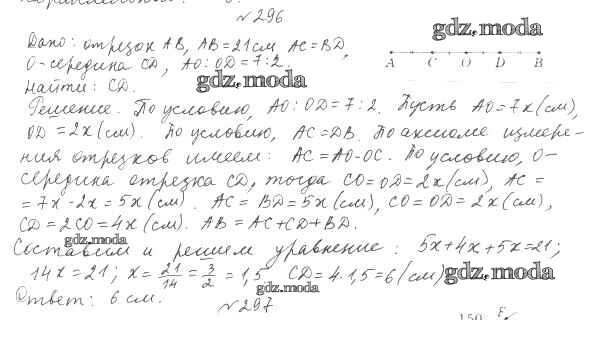 №296
gdz.moda
Дано: отрезок AB, AB=21см AC=BD,
A C O D B
O-середина CD, AO:OD=7:2.
gdz.moda
Найти: CD.
Решение. По условию, AO:OD=7:2. Пусть AO=7x(см),
OD=2x(см). По условию, AC=DB. По аксиоме измере-
ния отрезков имеем: AC=AO-OC. По условию, O-
середина отрезка CD, тогда CO=OD=2x(см), AC=
=7x-2x=5x(см). AC=BD=5x(см), CO=OD=2x(см),
CD=2CO=4x(см). AB=AC+CD+BD.
gdz.moda
Составим и решим уравнение: 5x+4x+5x=21;
14x=21; x=21/14=3/2=1,5 CD=4·1,5=6(см)
gdz.moda
gdz.moda
Ответ: 6 см.
№297
150 F